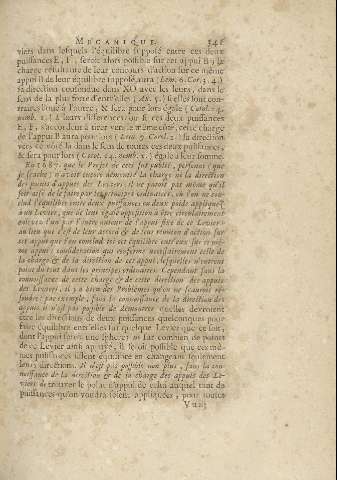 MECANIQUE. 341
viers dans lesquels l'équilibre supposé entre ces deux
puissances E, F, seroit alors possible sur cet appui B; la
charge résultante de leur concours d'action sur ce même
appui B de leur équilibre supposé, aura (Lem. 6. Cor. 3. 4.)
sa direction contenuë dans XO avec les leurs, dans le
sens de la plus forte d'entr'elles (Ax. 5.) si elles sont con-
traires l'une à l'autre, & sera pour lors égale (Corol.
nomb. 2.) à leurs différences: ou si ces deux puissances
E, F, s'accordent à tirer vers le même côté, cette charge
de l'appui B aura pareillement Corol. sa direction
vers ce côté-là dans le sens de toutes ces deux puissances,
& sera pour lors (Corol. 24. nomb. 1.) égale à leur somme.
En 1687. que le Projet de cecy fut publié, personne (que
je sçache) n'avoit encore démontré la charge ni la direction
des points d'appuis des Leviers; il ne paroît pas même qu'il
soit aisé de le faire par les principes ordinaires, où l'on ne con-
clud l'équilibre entre deux puissances ou deux poids appliquez
à un Levier, que de leur égale opposition à être circulairement
l'un par l'autre autour de l'appui fixe de ce Levier:
au lieu que c'est de leur accord & de leur réunion d'action sur
cet appui que l'on conclud ici cet équilibre entr'eux sur ce mê-
me appui: consideration qui renferme necessairement celle de
la charge & de la direction de cet apui, lesquelles n'entrent
point du tout dans les principes ordinaires. Cependant sans la
connoissance de cette charge & de cette direction des appuis
des Leviers, il y a bien des Problêmes qu'on ne sçauroit ré-
soudre: par exemple, sans la connoissance de la direction des
appuis il n'est pas possible de démontrer quelles devroient
être les directions de deux puissances quelconques pour
faire équilibre entr'elles sur quelque Levier que ce soit,
dont l'appui seroit une sphere; ni sur combien de points
de ce Levier ainsi appuyé, il seroit possible que ces mê-
mes puissances fissent équilibre en changeant seulement
leurs directions. Il n'est pas possible non plus, sans la con-
noissance de la direction & de la charge des appuis des Le-
viers de trouver le point d'appui de celui auquel tant de
puissances qu'on voudra seroient appliquées, pour toutes
V u iij